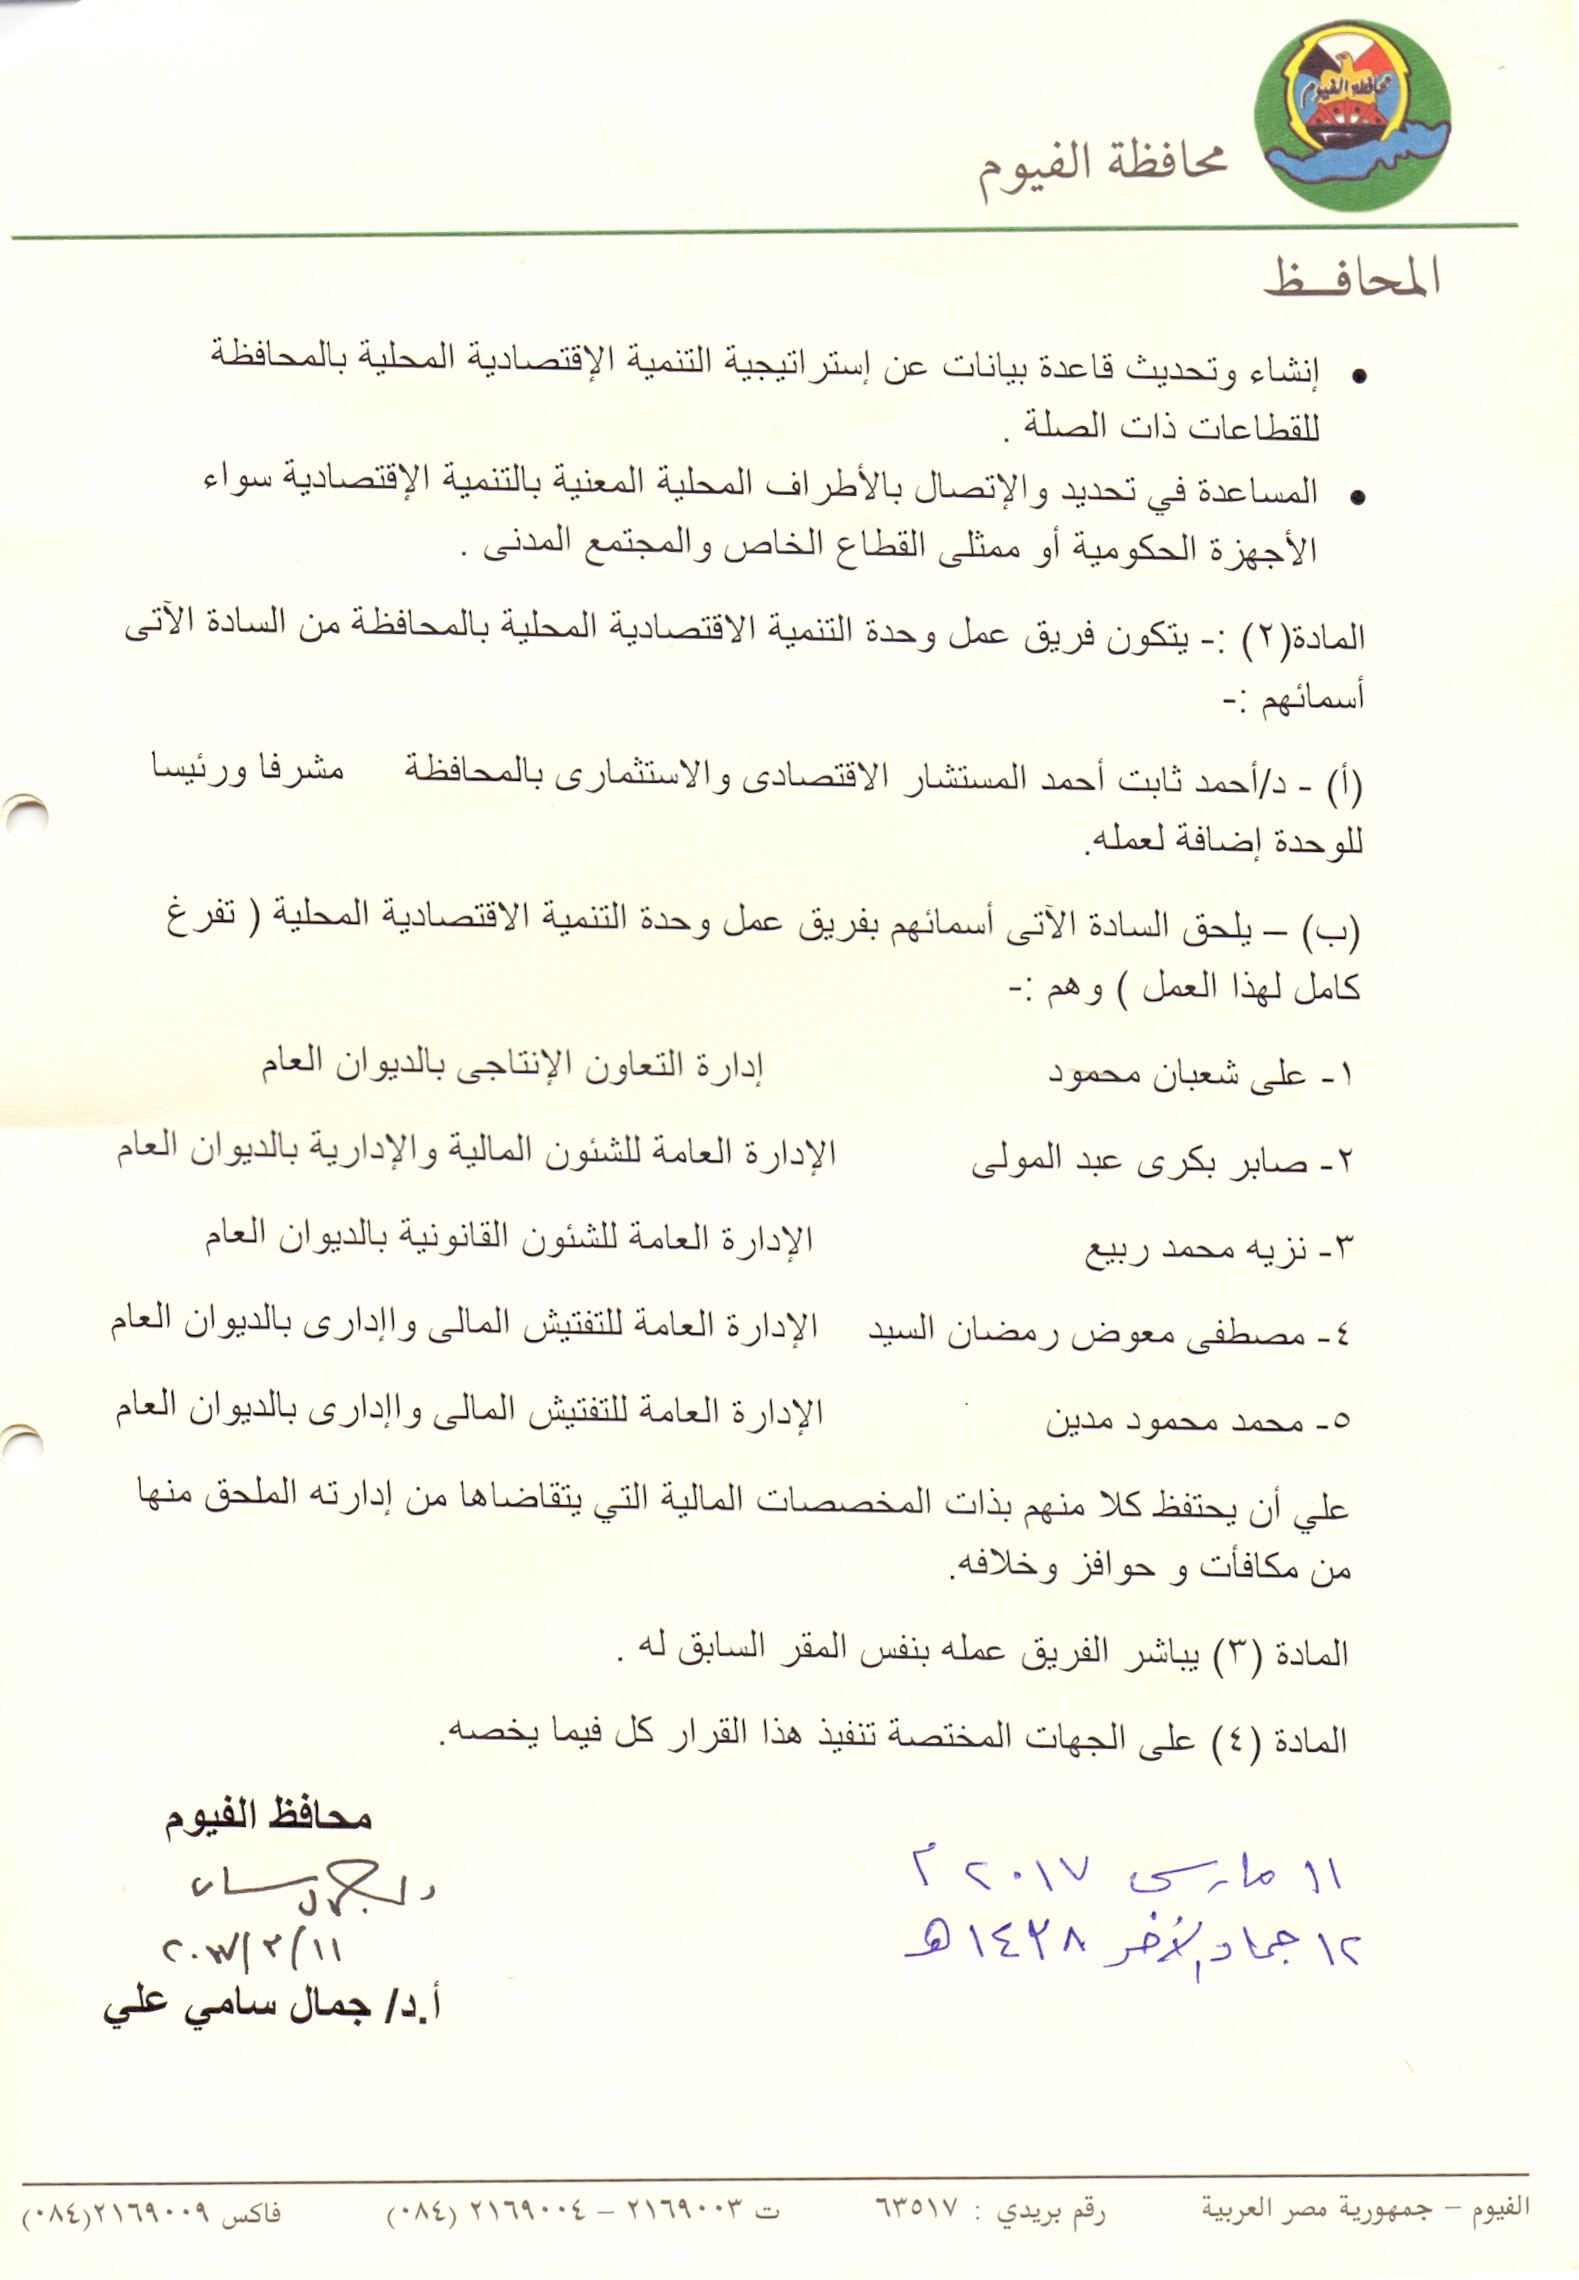 محافظة الفيوم
محافظة الفيوم
المحافـظ
• إنشاء وتحديث قاعدة بيانات عن إستراتيجية التنمية الإقتصادية المحلية بالمحافظة
للقطاعات ذات الصلة .
• المساعدة في تحديد والإتصال بالأطراف المحلية المعنية بالتنمية الإقتصادية سواء
الأجهزة الحكومية أو ممثلى القطاع الخاص والمجتمع المدنى .
المادة(٢) :- يتكون فريق عمل وحدة التنمية الاقتصادية المحلية بالمحافظة من السادة الآتى
أسمائهم :-
(أ) - د/أحمد ثابت أحمد المستشار الاقتصادى والاستثمارى بالمحافظة مشرفا ورئيسا
للوحدة إضافة لعمله.
(ب) – يلحق السادة الآتى أسمائهم بفريق عمل وحدة التنمية الاقتصادية المحلية ( تفرغ
كامل لهذا العمل ) وهم :-
١- على شعبان محمود إدارة التعاون الإنتاجى بالديوان العام
٢- صابر بكرى عبد المولى الإدارة العامة للشئون المالية والإدارية بالديوان العام
٣- نزيه محمد ربيع الإدارة العامة للشئون القانونية بالديوان العام
٤- مصطفى معوض رمضان السيد الإدارة العامة للتفتيش المالى واإدارى بالديوان العام
٥- محمد محمود مدين الإدارة العامة للتفتيش المالى واإدارى بالديوان العام
علي أن يحتفظ كلا منهم بذات المخصصات المالية التي يتقاضاها من إدارته الملحق منها
من مكافأت و حوافز وخلافه.
المادة (٣) يباشر الفريق عمله بنفس المقر السابق له .
المادة (٤) على الجهات المختصة تنفيذ هذا القرار كل فيما يخصه.
محافظ الفيوم
١١ مارس ٢٠١٧ م
١٢ جماد الآخر ١٤٣٨ هـ
٢٠١٧/٣/١١
أ.د/ جمال سامي علي
الفيوم – جمهورية مصر العربية رقم بريدي : ٦٣٥١٧ ت ٢١٦٩٠٠٣ – ٢١٦٩٠٠٤ (٠٨٤) فاكس ٢١٦٩٠٠٩(٠٨٤)